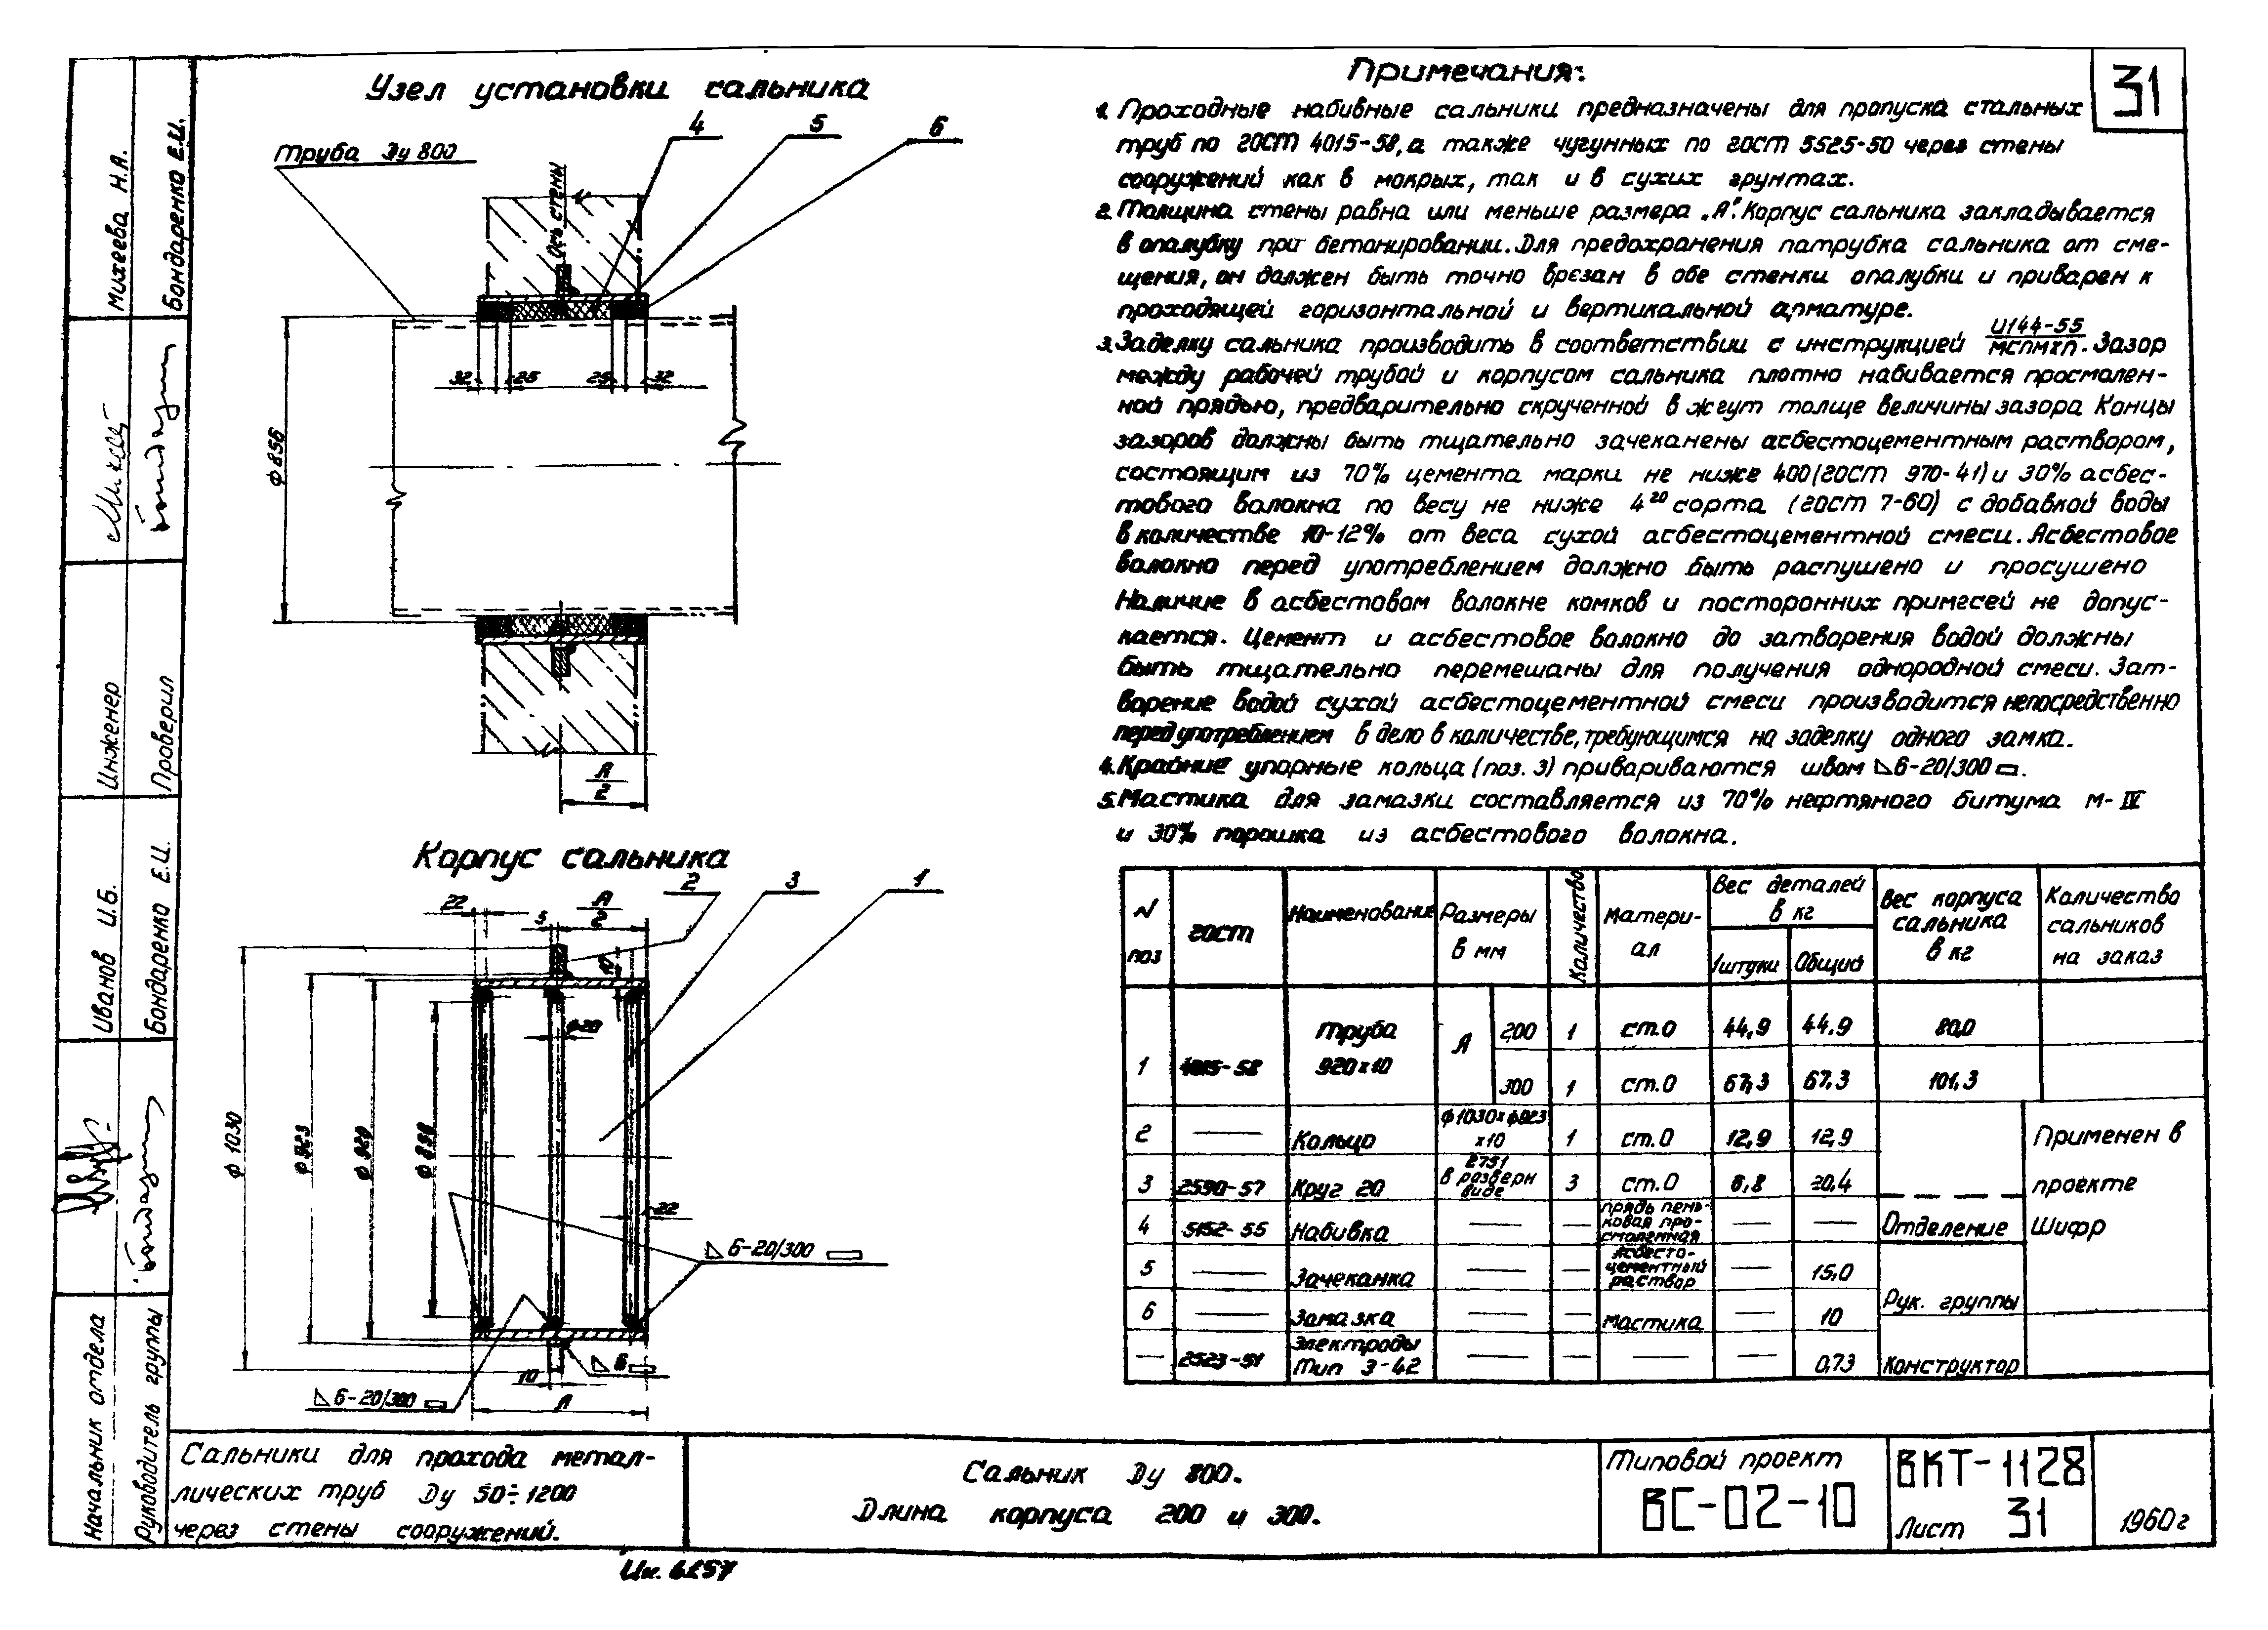 31
Узел установки сальника
Труба Ду 800
4
5
6
Ось стены
32
25
25
32
ф 856
А
2
Корпус сальника
2
3
1
22
5
А
2
10
ф 20
ф 1030
ф 923
ф 920
22
6-20/300
6
10
6-20/300
А
Примечания:
1. Проходные набивные сальники предназначены для пропуска стальных
труб по ГОСТ 4015-58, а также чугунных по ГОСТ 5525-50 через стены
сооружений как в мокрых, так и в сухих грунтах.
2. Толщина стены равна или меньше размера „А". Корпус сальника закладывается
в опалубку при бетонировании. Для предохранения патрубка сальника от сме-
щения, он должен быть точно врезан в обе стенки опалубки и приварен к
проходящей горизонтальной и вертикальной арматуре.
3. Заделку сальника производить в соответствии с инструкцией И144-55/МСПМХП. Зазор
между рабочей трубой и корпусом сальника плотно набивается просмолен-
ной прядью, предварительно скрученной в жгут толще величины зазора Концы
зазоров должны быть тщательно зачеканены асбестоцементным раствором,
состоящим из 70% цемента марки не ниже 400 (ГОСТ 970-41) и 30% асбес-
тового волокна по весу не ниже 4го сорта (ГОСТ 7-60) с добавкой воды
в количестве 10-12% от веса сухой асбестоцементной смеси. Асбестовое
волокно перед употреблением должно быть распушено и просушено
Наличие в асбестовом волокне комков и посторонних примесей не допус-
кается. Цемент и асбестовое волокно до затворения водой должны
быть тщательно перемешаны для получения однородной смеси. Зат-
ворение водой сухой асбестоцементной смеси производится непосредственно
перед употреблением в дело в количестве, требующимся на заделку одного замка.
4. Крайние упорные кольца (поз. 3) привариваются швом 6-20/300.
5. Мастика для замазки составляется из 70% нефтяного битума М-IV
и 30% порошка из асбестового волокна.
N поз | ГОСТ | Наименование | Размеры в мм | Количество | Матери-ал | Вес деталей в кг | 1 штуки | Общий | Вес корпуса сальника в кг | Количество сальников на заказ
1 | 4015-58 | Труба 920х10 | А | 200 | 1 | ст.0 | 44,9 | 44.9 | 80,0
300 | 1 | ст.0 | 67,3 | 67.3 | 101,3
2 | — | Кольцо | ф1030хф923 х10 | 1 | ст.0 | 12,9 | 12,9
3 | 2590-57 | Круг 20 | 2751 в разверн виде | 3 | ст.0 | 6,8 | 20,4
4 | 5152-55 | Набивка | — | — | прядь пень-ковая про-смоленная | — | —
5 | — | Зачеканка | — | — | Асбесто-цементный раствор | — | 15,0
6 | — | Замазка | — | — | Мастика | — | 10
— | 2523-51 | Электроды Тип Э-42 | — | — | — | — | 0,73
Применен в
проекте
Отделение Шифр
Рук. группы
Конструктор
Михеева Н.А.
Бондаренко Е.И.
Инженер
Проверил
Иванов И.Б.
Бондаренко Е.И.
Начальник отдела
Руководитель группы
Сальники для прохода метал-
лических труб Ду 50÷1200
через стены сооружений.
Сальник Ду 800.
Длина корпуса 200 и 300.
Типовой проект
ВС-02-10
ВКТ-1128
Лист 31
1960 г
Ин. 6257